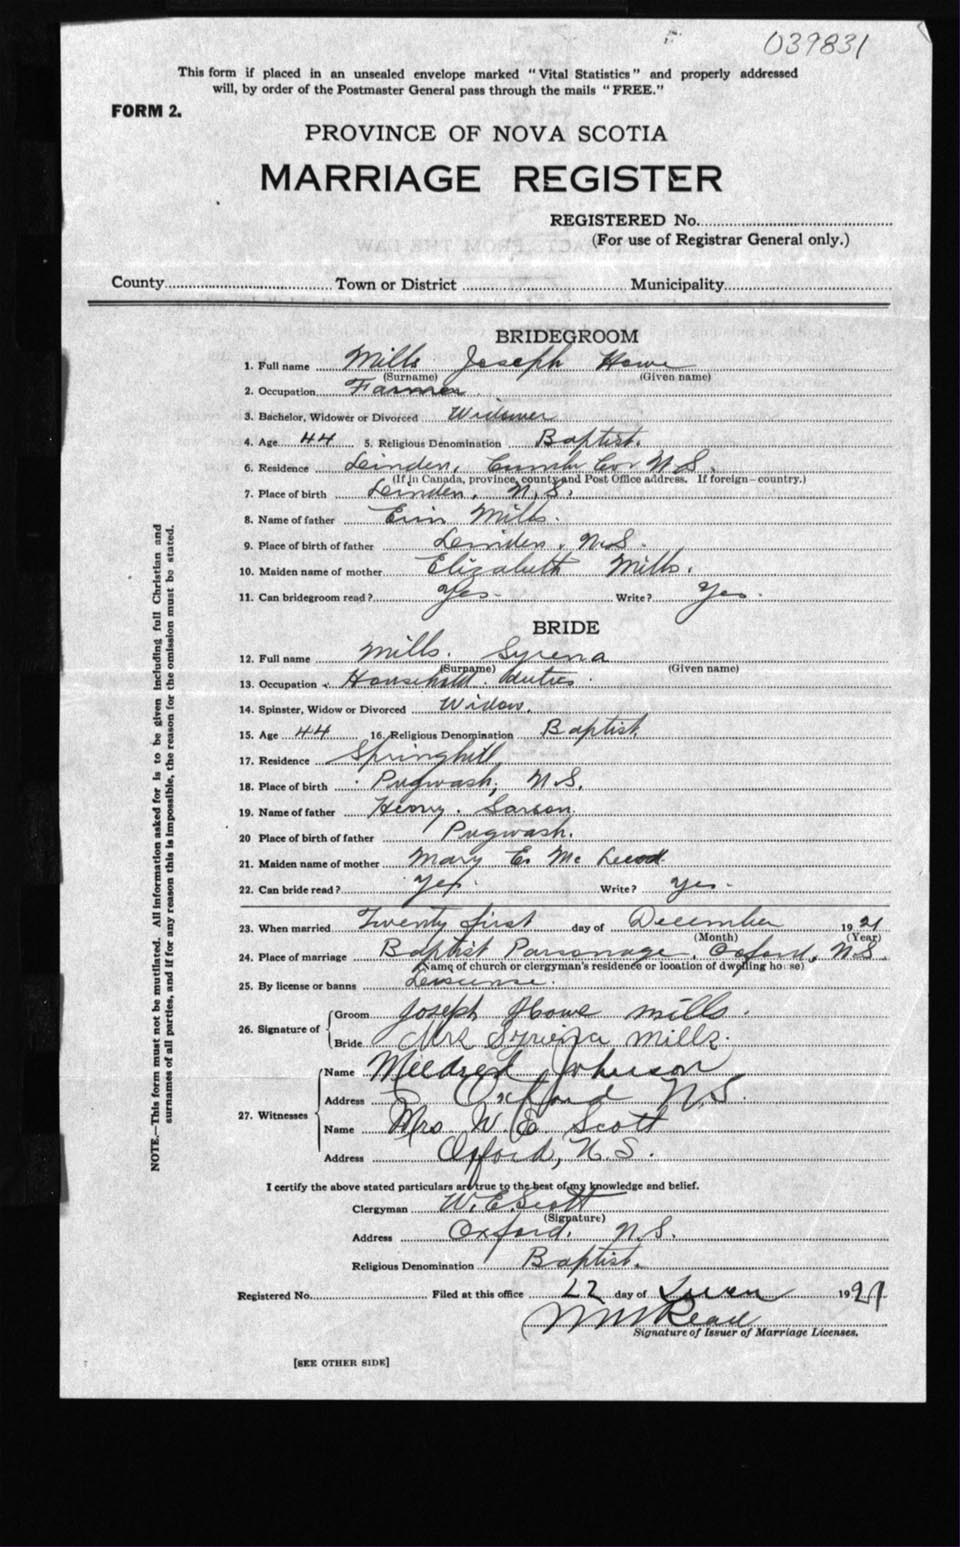 039831
This form if placed in an unsealed envelope marked "Vital Statistics" and properly addressed
will, by order of the Postmaster General pass through the mails "FREE."
FORM 2.
PROVINCE OF NOVA SCOTIA
MARRIAGE REGISTER
REGISTERED No.
(For use of Registrar General only.)
County Town or District Municipality
BRIDEGROOM
1. Full name Mills Joseph Howe
(Surname) (Given name)
2. Occupation Farmer
3. Bachelor, Widower or Divorced Widower
4. Age 44 5. Religious Denomination Baptist.
6. Residence Linden, Cumb Co N.S.
(If in Canada, province, county and Post Office address. If foreign—country.)
7. Place of birth Linden, N.S.
8. Name of father Mills.
9. Place of birth of father Linden, N.S.
10. Maiden name of mother Elizabeth Mills.
11. Can bridegroom read? Yes. Write? Yes.
BRIDE
12. Full name Mills. Syrena
(Surname) (Given name)
13. Occupation Household duties.
14. Spinster, Widow or Divorced Widow.
15. Age 44 16. Religious Denomination Baptist
17. Residence Springhill
18. Place of birth Pugwash, N.S.
19. Name of father Henry.
20 Place of birth of father Pugwash.
21. Maiden name of mother Mary E. Mc Leod
22. Can bride read? Yes. Write? Yes.
23. When married Twenty first day of December 1921
(Month) (Year)
24. Place of marriage Baptist Parsonage, Oxford, N.S.
(Name of church or clergyman's residence or location of dwelling house)
25. By license or banns
26. Signature of Groom Joseph Howe Mills.
Bride Mrs Syrena Mills.
27. Witnesses
Name Mildred Johnson
Address Oxford N.S.
Name Mrs W. E. Scott
Address Oxford, N.S.
I certify the above stated particulars are true to the best of my knowledge and belief.
Clergyman W. E. Scott
(Signature)
Address Oxford. N.S.
Religious Denomination Baptist.
Registered No. Filed at this office 22 day of 1921
Read
Signature of Issuer of Marriage Licenses.
[SEE OTHER SIDE]
NOTE.—This form must not be mutilated. All information asked for is to be given including full Christian and
surnames of all parties, and if for any reason this is impossible, the reason for the omission must be stated.